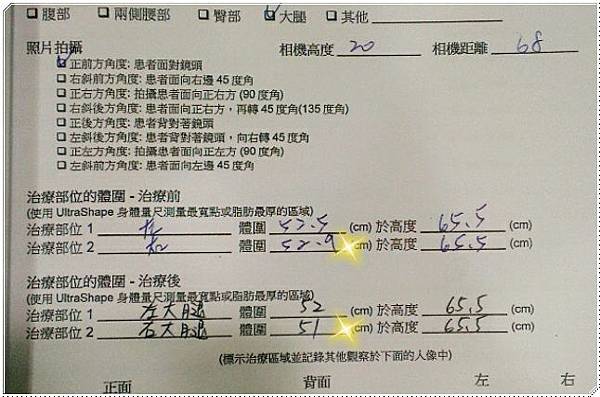 □ 腹部 □ 兩側腰部 □ 臀部 ☑ 大腿 □ 其他
照片拍攝 相機高度 20 相機距離 68
☑ 正前方角度: 患者面對鏡頭
□ 右斜前方角度: 患者面向右邊 45 度角
□ 正右方角度: 拍攝患者面向正右方 (90 度角)
□ 右斜後方角度: 患者面向正右方，再轉 45 度角(135 度角)
□ 正後方角度: 患者背對著鏡頭
□ 左斜後方角度: 患者背對著鏡頭，向右轉 45 度角
□ 正左方角度: 拍攝患者面向正左方 (90 度角)
□ 左斜前方角度: 患者面向左邊 45 度角
治療部位的體圍 - 治療前
(使用 UltraShape 身體量尺測量最寬點或脂肪最厚的區域)
治療部位 1 左 體圍 53.5 (cm) 於高度 65.5 (cm)
治療部位 2 右 體圍 52.9 cm) 於高度 65.5 (cm)
治療部位的體圍 - 治療後
(使用 UltraShape 身體量尺測量最寬點或脂肪最厚的區域)
治療部位 1 左大腿 體圍 52 (cm) 於高度 65.5 (cm)
治療部位 2 右大腿 體圍 51 cm) 於高度 65.5 (cm)
(標示治療區域並記錄其他觀察於下面的人像中)
正面 背面 左 右